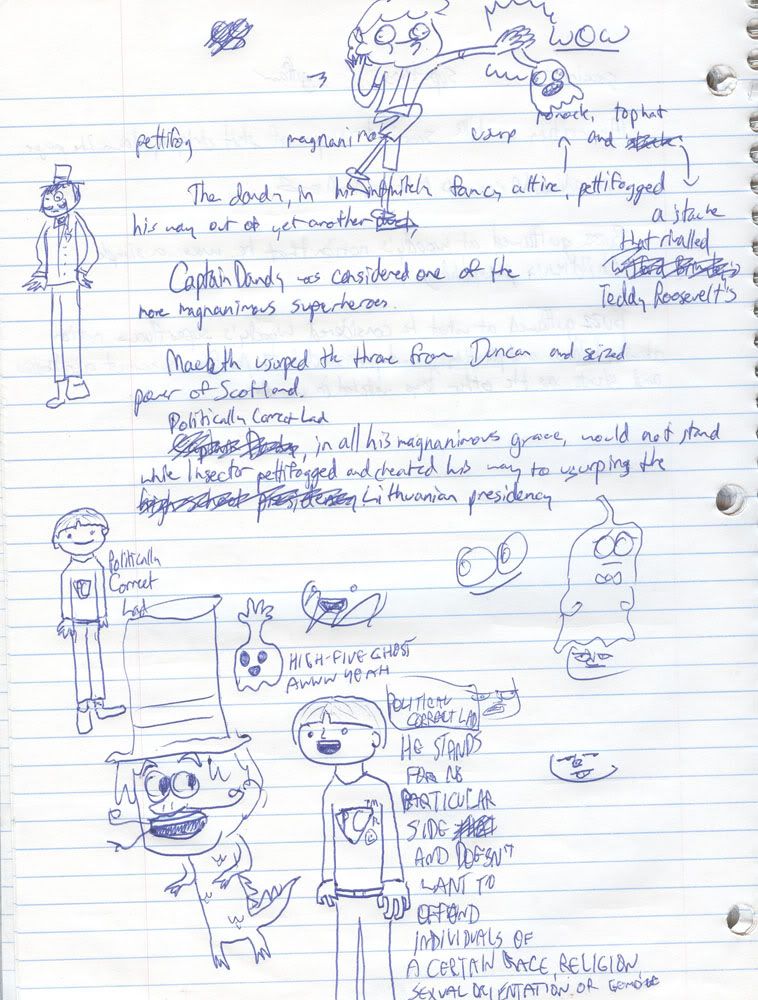 WOW
pettifog magnanimous usurp monocle, tophat
and
The dandy, in his fancy attire, pettifogged
his way out of yet another
a stache
that rivalled
Teddy Roosevelt's
Captain Dandy was considered one of the
more magnanimous superheroes.
Macbeth usurped the throne from Duncan and seized
power of Scotland.
Politically Correct Lad
, in all his magnanimous grace, would not stand
while Insector pettifogged and cheated his way to usurping the
high school presidency Lithuanian presidency
Politically
Correct
Lad
HIGH-FIVE GHOST
AWWW YEAH
POLITICAL
CORRECT LAD
HE STANDS
FOR NO
PARTICULAR
SIDE
AND DOESN'T
WANT TO
OFFEND
INDIVIDUALS OF
A CERTAIN RACE, RELIGION,
SEXUAL ORIENTATION, OR GENDER
PC
TM
R
C